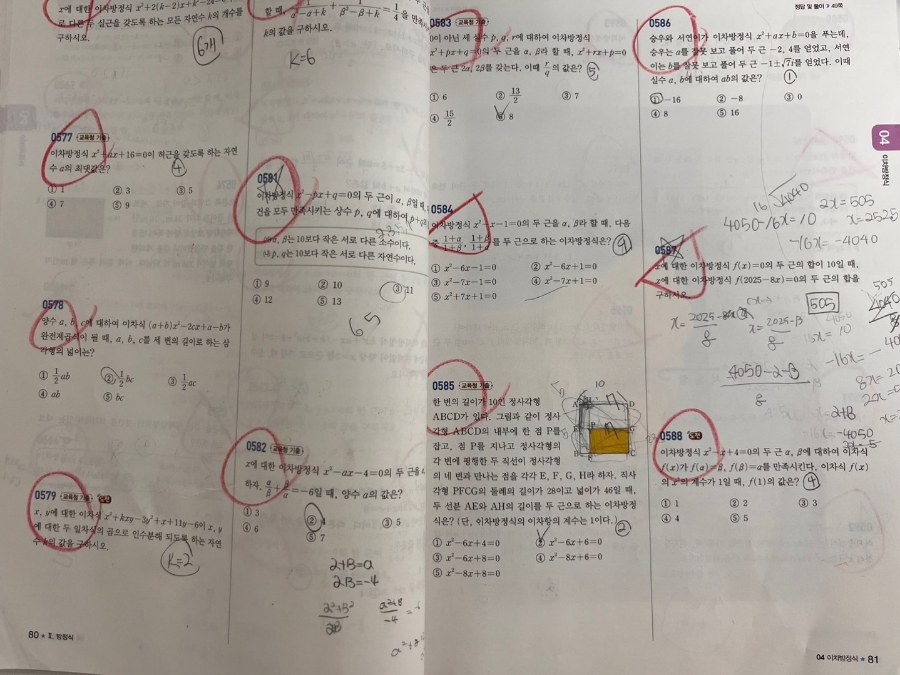 x에 대한 이차방정식 x²+2(k-2)x+k²-24=0이 서
로 다른 두 실근을 갖도록 하는 모든 자연수 k의 개수를
구하시오.
6개
0577 교육청 기출
이차방정식 x²+ax+16=0이 허근을 갖도록 하는 자연
수 a의 최댓값은?
④
① 1 ② 3 ③ 5
④ 7 ⑤ 9
0578
양수 a, b, c에 대하여 이차식 (a+b)x²-2cx+a-b가
완전제곱식이 될 때, a, b, c를 세 변의 길이로 하는 삼
각형의 넓이는?
① 1/2 ab ② 1/2 bc ③ 1/2 ac
④ ab ⑤ bc
0579 교육청 기출
x, y에 대한 이차식 x²+kxy-3y²+x+11y-6이 x, y
에 대한 두 일차식의 곱으로 인수분해 되도록 하는 자연
수 k의 값을 구하시오.
k=2
80 Ⅱ. 방정식
할 때, 1/(α²-α+k)+1/(β²-β+k)=1/4을 만족
k의 값을 구하시오.
k=6
0581
이차방정식 x²-px+q=0의 두 근이 α, β일 때,
건을 모두 만족시키는 상수 p, q에 대하여 p+q
㈎ α, β는 10보다 작은 서로 다른 소수이다.
㈏ p, q는 10보다 작은 서로 다른 자연수이다.
① 9 ② 10 ③ 11
④ 12 ⑤ 13
65
0582 교육청 기출
x에 대한 이차방정식 x²-ax-4=0의 두 근을
하자. α/β+β/α=-6일 때, 양수 a의 값은?
① 3 ② 4 ③ 5
④ 6 ⑤ 7
α+β=a
αβ=-4
α²+β²
αβ
a²+8
-4
0583 교육청 기출
0이 아닌 세 실수 p, q, r에 대하여 이차방정식
x²+px+q=0의 두 근을 α, β라 할 때, x²+rx+p=0
은 두 근 2α, 2β를 갖는다. 이때 r/q의 값은? ⑤
① 6 ② 13/2 ③ 7
④ 15/2 ⑤ 8
0584
이차방정식 x²-x-1=0의 두 근을 α, β라 할 때, 다음
중 (1+α)/(1+β), (1+β)/(1+α)를 두 근으로 하는 이차방정식은? ④
① x²-6x-1=0 ② x²-6x+1=0
③ x²-7x-1=0 ④ x²-7x+1=0
⑤ x²+7x+1=0
0585 교육청 기출
한 변의 길이가 10인 정사각형
ABCD가 있다. 그림과 같이 정사
각형 ABCD의 내부에 한 점 P를
잡고, 점 P를 지나고 정사각형의
각 변에 평행한 두 직선이 정사각형
의 네 변과 만나는 점을 각각 E, F, G, H라 하자. 직사
각형 PFCG의 둘레의 길이가 28이고 넓이가 46일 때,
두 선분 AE와 AH의 길이를 두 근으로 하는 이차방정
식은? (단, 이차방정식의 이차항의 계수는 1이다.) ②
① x²-6x+4=0 ② x²-6x+6=0
③ x²-6x+8=0 ④ x²-8x+6=0
⑤ x²-8x+8=0
10
정답 및 풀이
0586
승우와 서연이가 이차방정식 x²+ax+b=0을 푸는데,
승우는 a를 잘못 보고 풀어 두 근 -2, 4를 얻었고, 서연
이는 b를 잘못 보고 풀어 두 근 -1±√7i를 얻었다. 이때
실수 a, b에 대하여 ab의 값은? ①
① -16 ② -8 ③ 0
④ 8 ⑤ 16
4050-16x=10
-16x=-4040
2x=505
x=252.5
0587
x에 대한 이차방정식 f(x)=0의 두 근의 합이 10일 때,
x에 대한 이차방정식 f(2025-8x)=0의 두 근의 합을
구하시오.
505
4050-α-β
8
0588
이차방정식 x²-x+4=0의 두 근 α, β에 대하여 이차식
f(x)가 f(α)=β, f(β)=α를 만족시킨다. 이차식 f(x)
의 x²의 계수가 1일 때, f(1)의 값은? ④
① 1 ② 2 ③ 3
④ 4 ⑤ 5
04
이차방정식
04 이차방정식 81